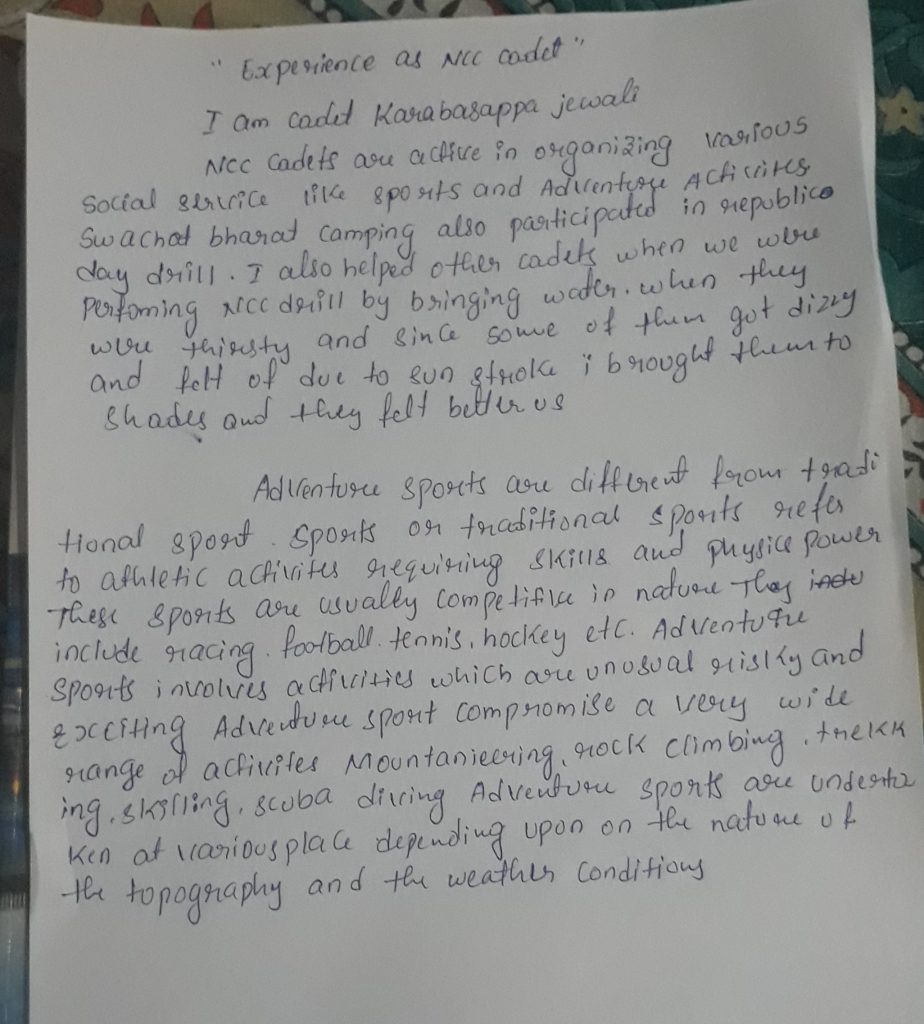 " Experience as NCC cadet "
I am cadet Karabasappa jewali
NCC Cadets are active in organizing various
Social service like sports and Adventure Activites
Swachat bharat camping also participated in republica
day drill. I also helped other cadets when we were
Perfoming NCC drill by bringing water. when they
were thirsty and since some of them got dizzy
and felt of due to sun stroke i brought them to
Shades and they felt better us
Adventure sports are different from tradi
tional sport. Sports or traditional sports refer
to athletic activites requiring skills and physice power
These sports are usually competitive in nature They
include racing. football. tennis, hockey etc. Adventure
Sports involves activities which are unusual risky and
exciting Adventure sport compromise a very wide
range of activites Mountanieering, rock climbing, trekk
ing. skilling, scuba diving Adventure sports are underta
ken at various place depending upon on the nature of
the topography and the weather conditions